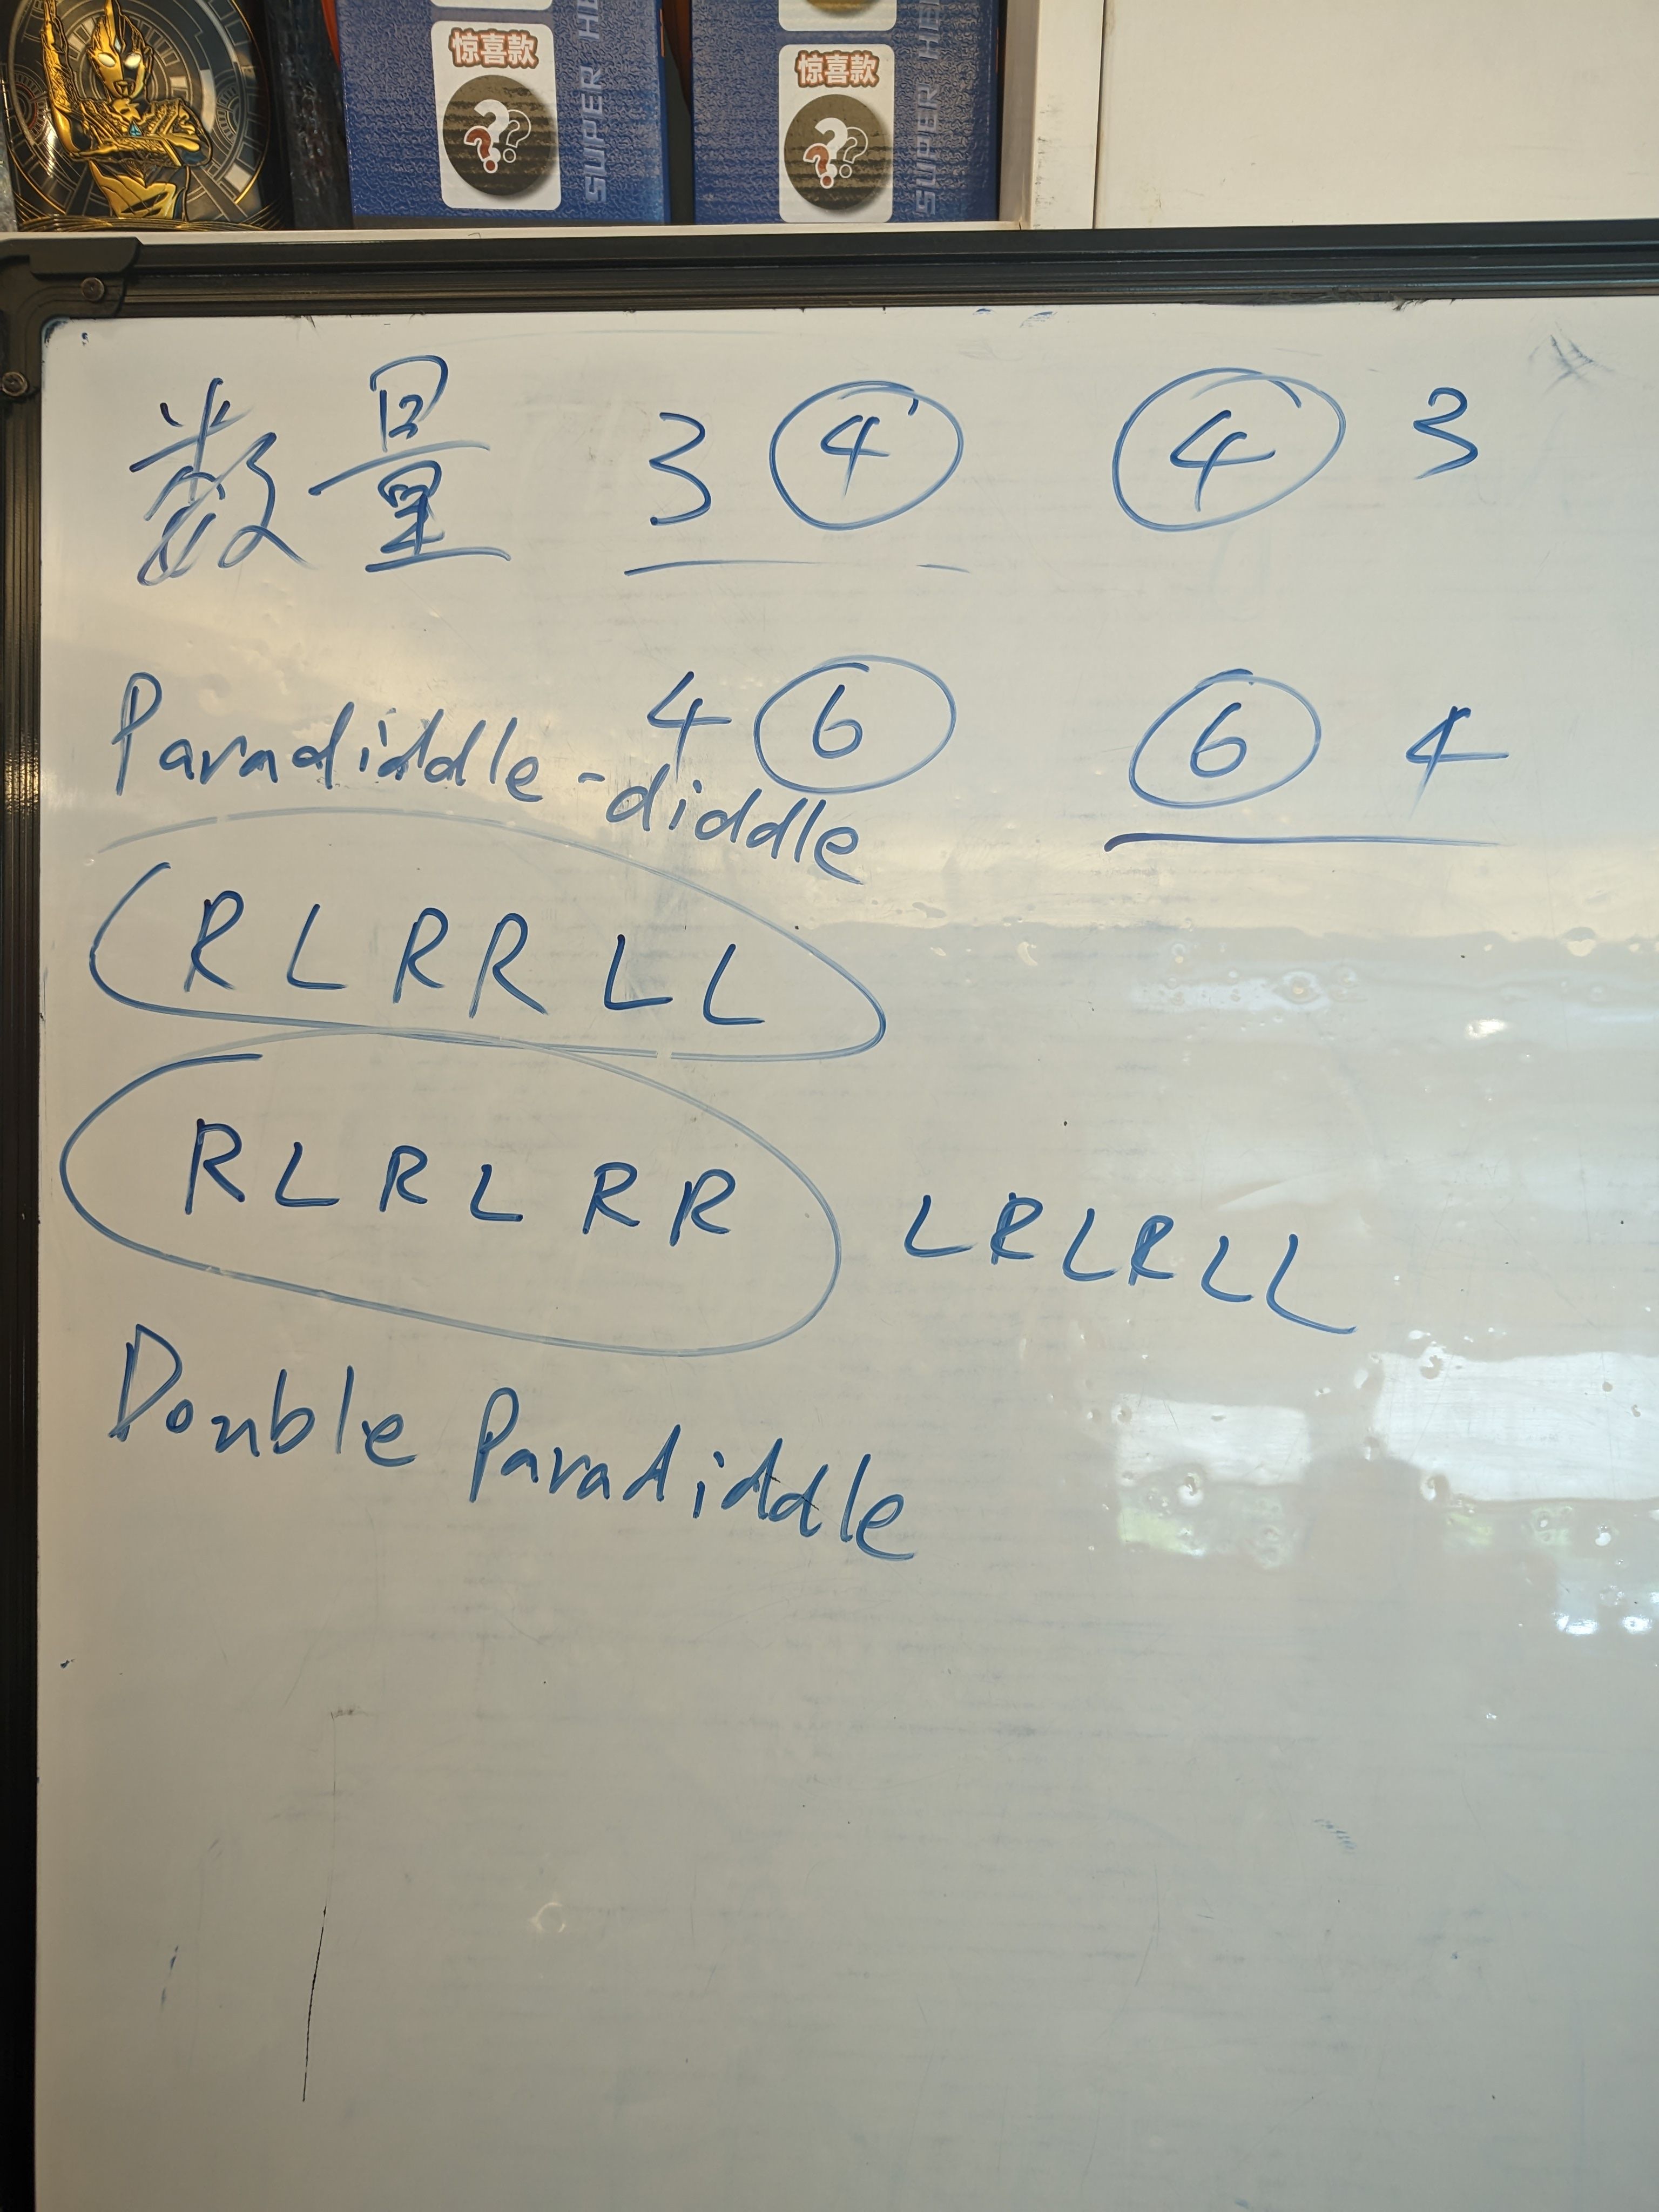 惊喜款
SUPER HE
惊喜款
SUPER HE
数量 3 4 4 3
Paradiddle-diddle 4 6 6 4
R L R R L L
R L R L R R L R L R L L
Double Paradiddle